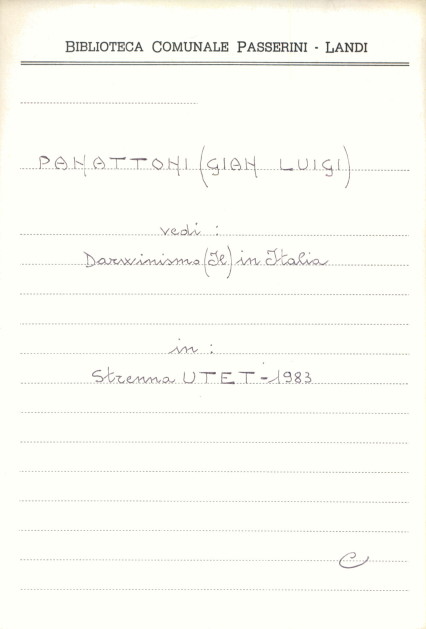 BIBLIOTECA COMUNALE PASSERINI - LANDI
PANATTONI (GIAN LUIGI)
vedi :
Darwinismo (Il) in Italia
in :
Strenna UTET - 1983
C